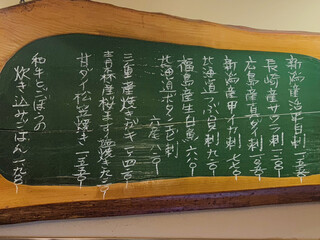 新潟産活平目刺 一、二五〇
長崎産サワラ刺 一、二〇〇
広島産真ダイ刺 一、二五〇
新潟産甲イカ刺 七八〇
北海道つぶ貝刺 九二〇
福島産生白魚 六八〇
北海道ボタンエビ刺
六尾
三重産焼きがき
青森産桜ます塩焼
甘ダイ松笠焼き 一、三五〇
和牛とごぼうの
炊き込みごはん 一、一九〇